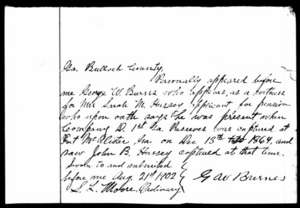 Ga. Bulloch County,
Personally appeared before
me George W. Burns who appears, as a witness
for Mrs Sarah M. Hursey applicant for pension
who upon oath says he was present when
Company D. 1st Ga Reserves was captured at
Fort McAlister, Ga. on Dec 13th 1864, and
saw John B. Hursey captured at that time.
Sworn to and subscribed
before me Aug. 21st 1902 G W Burnes
Moore, Ordinary